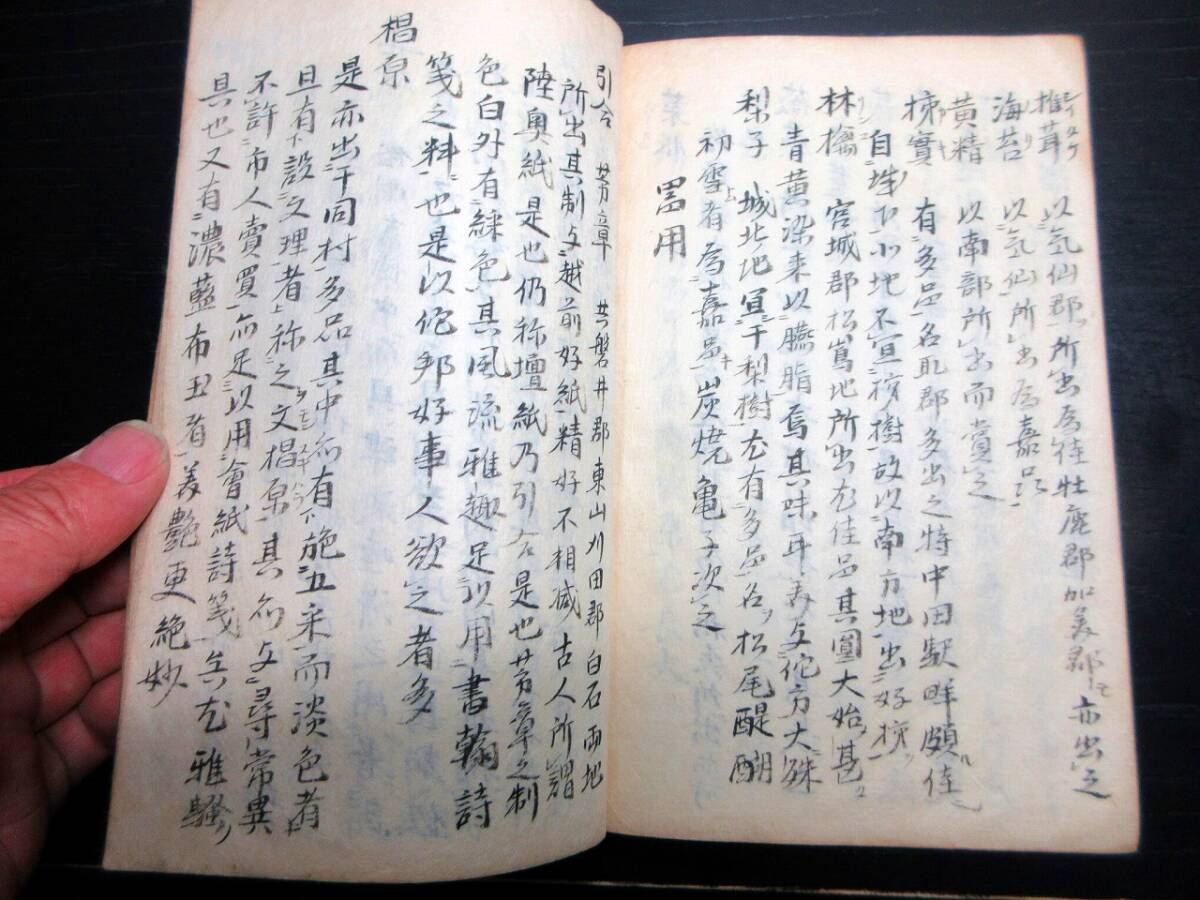 椎茸 以氣仙郡所出為佳牡鹿郡加美郡亦出之
海苔 以氣仙所出為嘉品
黄精 以南部所出而賞之
柿實 有多品名取郡多出之特中田駅畔頗佳
自城下小地不宜柿樹故以南方地出好柿
林檎 宮城郡松嶌地所出尤佳品其圓大始甚
青黄染来以臙脂焉其味耳美与佗方大殊
梨子 城北地宜于梨樹尤有多品名松尾醍醐
初雪者為嘉品炭焼亀子次之
噐用
引合 芳章 共磐井郡東山刈田郡白石両地
所出其制与越前好紙精好不相减古人所謂
陸奥紙是也仍称壇紙乃引合是也芳章之制
色白外有綵色其風流雅趣足以用書翰詩
箋之料也是以佗邦好事人欲之者多
椙原
是亦出于同村多品其中而有施五采而淡色者
且有設文理者称之文椙原其而与尋常異
不許市人賣買而足以用會紙詩箋矣尤雅騒
具也又有濃藍布丑者美艶更絶妙